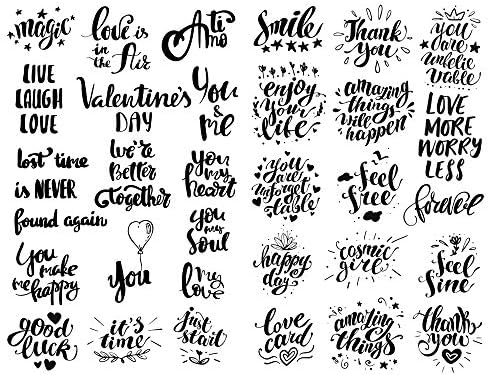 magic
love is
in the
Air
Ti
Amo
LIVE
LAUGH
LOVE
Valentine's
DAY
You
& me
lost time
is NEVER
found again
we're
Better
together
you
my
heart
you
my
Soul
You
make
me happy
you
my
love
good
luck
it's
time
just
start
Smile
Thank
you
you
are
unbelie
vable
enjoy
your
life
amazing
things
will
happen
LOVE
MORE
WORRY
LESS
you
are
unforget
table
feel
free
forever
happy
day
cosmic
girl
feel
fine
love
card
amazing
things
thank
you